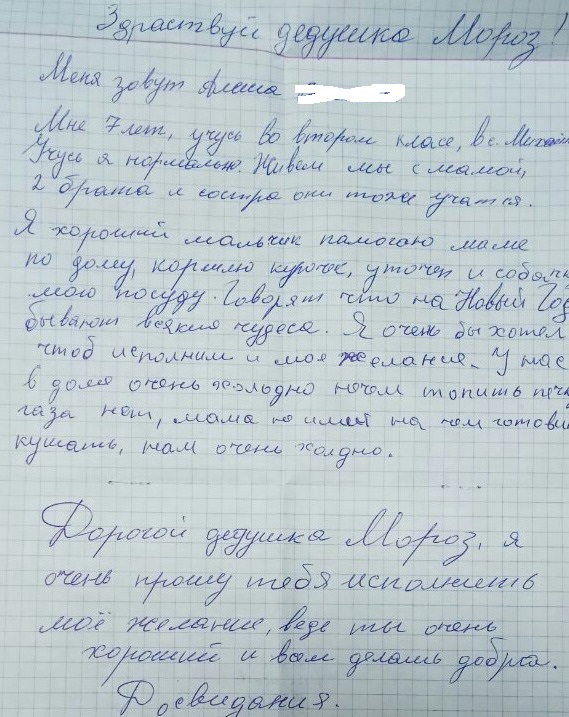 Здраствуй дедушка Мороз!
Меня зовут Алеша
Мне 7 лет, учусь во втором класе, в с.
Учусь я нормально. Живем мы с мамой,
2 брата и состра они тоже учатся.
Я хороший мальчик памогаю маме
по дому, кормлю курочек, уточек и собачк
мою посуду. Говорят что на Новый Год
бывают всякие чудеса. Я очень бы хотел
чтоб исполним и мое желания. У нас
в доме очень холодно нечем топить печк
газа нет, мама не имеет на чем готовит
кушать, нам очень холдно.
Дорогой дедушка Мороз, я
очень прошу тебя исполнить
моё желание, веде ты очень
хороший и всем делаешь добра.
Досвидания.